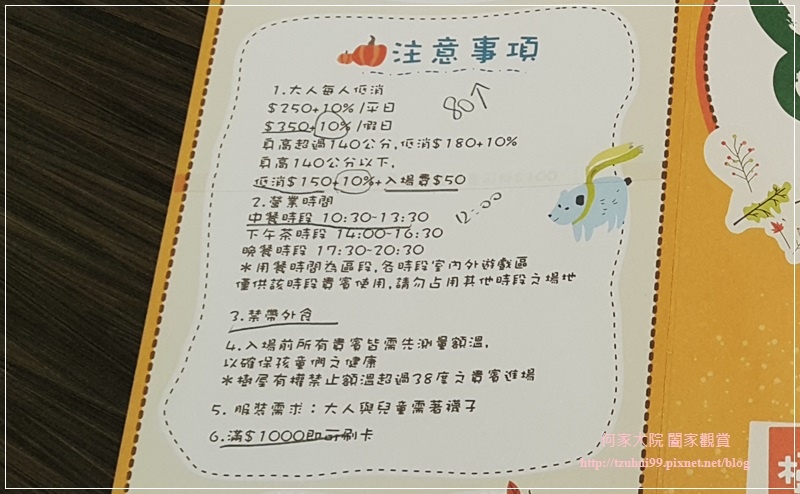 注意事項
1.大人每人低消
$250+10%/平日
$350+10%/假日
80↑
身高超過140公分,低消$180+10%
身高140公分以下,
低消$150+10%+入場費$50
2.營業時間
中餐時段 10:30-13:30
12:00
下午茶時段 14:00-16:30
晚餐時段 17:30-20:30
*用餐時間為區段,各時段室內外遊戲區
僅供該時段貴賓使用,請勿占用其他時段之場地
3.禁帶外食
4.入場前所有貴賓皆需先測量額溫,
以確保孩童們之健康
*樹屋有權禁止額溫超過38度之貴賓進場
5.服裝需求:大人與兒童需著襪子
6.滿$1000即可刷卡
何家大院 闔家觀賞
http://tzuhui99.pixnet.net/blog